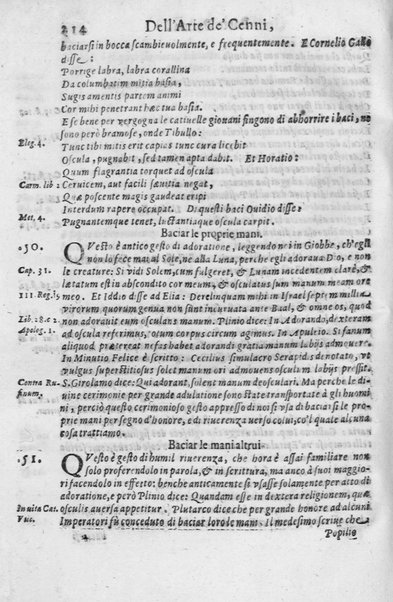 214 Dell'Arte de' Cenni,
baciarsi in bocca scambieuolmente, e frequentemente. E Cornelio Gallo
disse:
Porrige labra, labra corallina
Da columbatim mitia basia,
Sugis amentis partem animi
Cor mihi penetrant hæc tua basia.
E se bene per vergogna le cattiuelle giouani fingono di abborrire i baci, ne
sono però bramose, onde Tibullo:
Eleg. 4. Tunc tibi mitis erit capias tunc cura licebit
Oscula, pugnabit, sed tamen apta dabit. Et Horatio:
Quum flagrantia torquet ad oscula
Carm. lib: Ceruicem, aut facili sæuitia negat,
Quæ poscente magis gaudeat eripi
Interdum rapere occupat. Di questi baci Ouidio disse:
Met. 4. Pugnantemque tenet, luctantiaque oscula carpit.
Baciar le proprie mani.
50. QVesto è antico gesto di adoratione, leggendosi in Giobbe, ch'egli
non lo fece mai al Sole, ne alla Luna, perche egli adoraua Dio, e non
le creature: Si vidi Solem, cum fulgeret, & Lunam incedentem clarè, &
Cap. 31. lætatum est in abscondito cor meum, & osculatus sum manum meam ore
meo. Et Iddio disse ad Elia: Derelinquam mihi in Israel septem millia
III Reg. 19. virorum quorum genua non sunt incuruata ante Baal, & omne os, quod
non adorauit eum osculans manum. Plinio dice: In Adorando, dexteram
Lib. 28. c. 2. ad osculum referimus, totum corpus circum agimus. In Apuleio. Si fanum
Apoleg. 1. aliquod prætereat nefas habet adorandi gratia manum labijs admouere.
In Minutio Felice è scritto: Cecilius simulacro Serapidis denotato, vt
vulgus superstitiosus solet manum ori admouens osculum labijs pressit.
Contra Rufinum. S. Girolamo dice: Qui adorant, solent manum deosculari. Ma perche le diuine
cerimonie per grande adulatione sono state transportate à gli huomini,
perciò questo cerimonioso gesto appresso di noi si vsa di baciarsi le proprie
mani per segno d'honore, e di riuerenza verso colui, co'l quale alcuna
cosa trattiamo.
Baciar le mani altrui.
51. QVesto è gesto di humil riuerenza, che hora è assai familiare non
solo proferendolo in parola, & in scrittura, ma anco à suoi maggiori
facendolo in effetto: benche anticamente si vsasse solamente per atto di
adoratione, e però Plinio dice: Quandam esse in dextera religionem, quæ
In vita Cat. osculis auersa appetitur. Plutarco dice che per grande honore ad alcuni
Vtic. Imperatori fù conceduto di baciar loro le mani. Il medesimo scriue che
Popilio